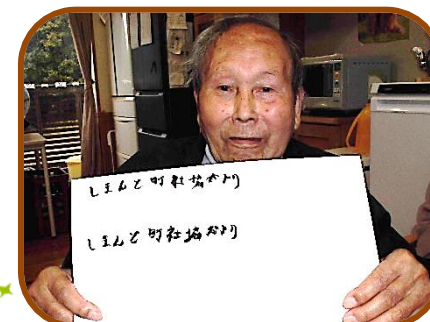 しまんと町社協だより
しまんと町社協だより